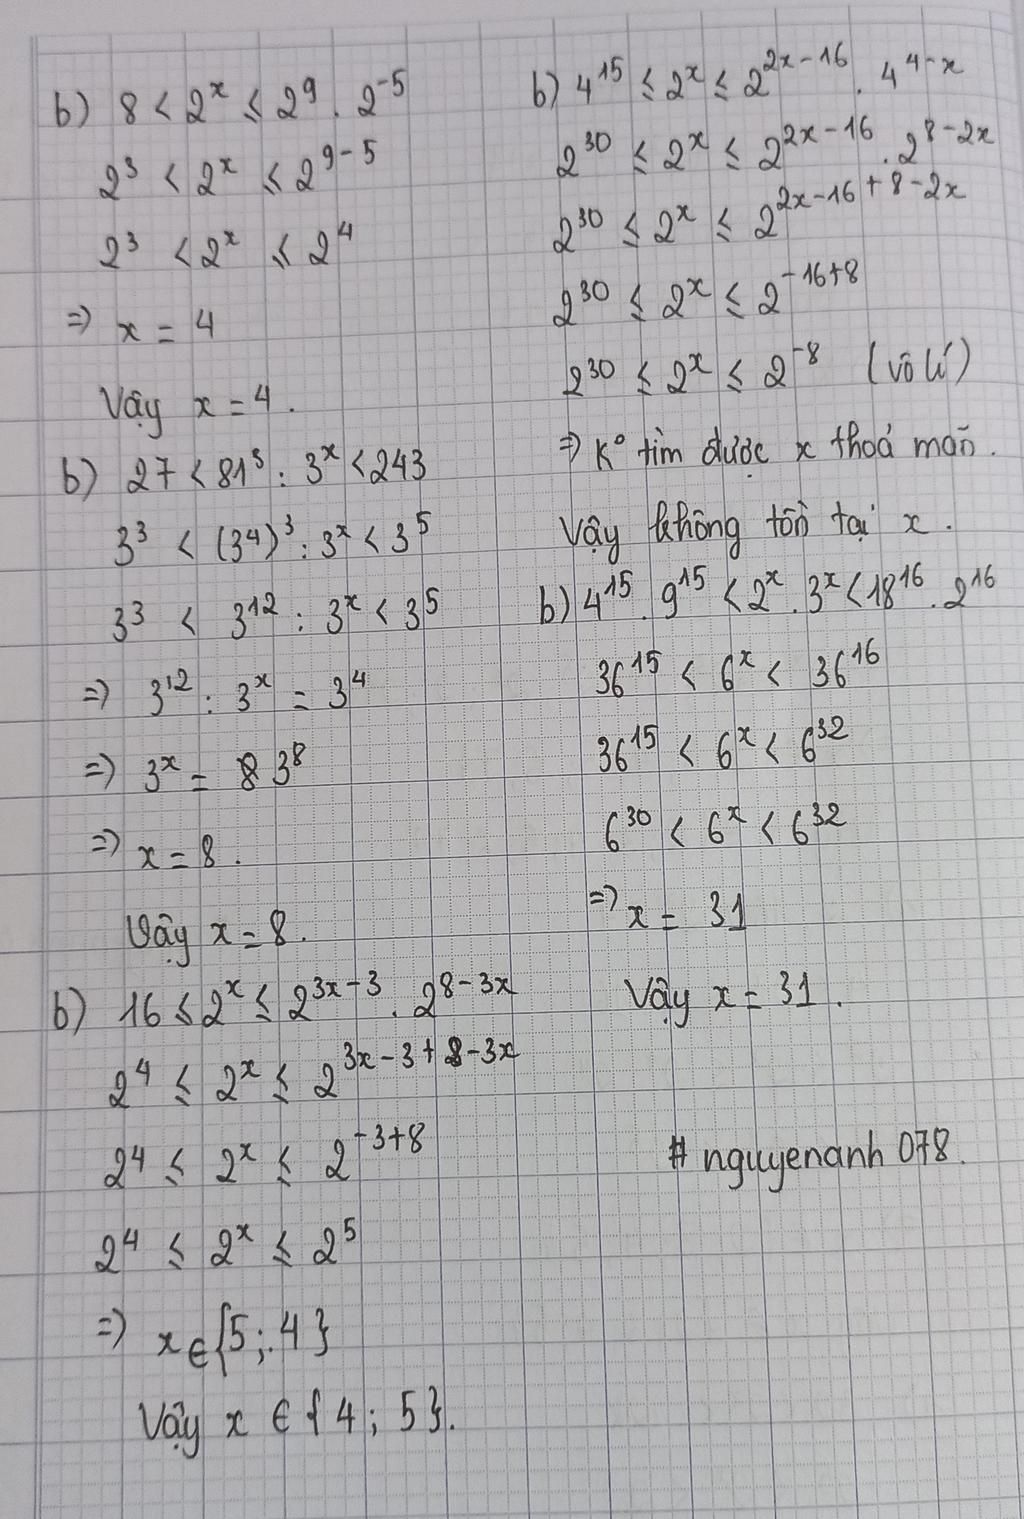 b) 8 < 2^x ≤ 2^9 . 2^-5
2^3 < 2^x ≤ 2^9-5
2^3 < 2^x ≤ 2^4
=> x = 4
Vậy x = 4.
b) 27 < 81^3 : 3^x < 243
3^3 < (3^4)^3 : 3^x < 3^5
3^3 < 3^12 : 3^x < 3^5
=> 3^12 : 3^x = 3^4
=> 3^x = 8 3^8
=> x = 8.
Vậy x = 8.
b) 16 ≤ 2^x ≤ 2^3x-3 . 2^8-3x
2^4 ≤ 2^x ≤ 2^3x-3+8-3x
2^4 ≤ 2^x ≤ 2^-3+8
2^4 ≤ 2^x ≤ 2^5
=> x ∈ {5; 4}
Vậy x ∈ {4; 5}.
b) 4^15 ≤ 2^x ≤ 2^2x-16 . 4^4-x
2^30 ≤ 2^x ≤ 2^2x-16 . 2^8-2x
2^30 ≤ 2^x ≤ 2^2x-16+8-2x
2^30 ≤ 2^x ≤ 2^-16+8
2^30 ≤ 2^x ≤ 2^-8 (vô lí)
=> K° tìm được x thoả mãn.
Vậy không tồn tại x.
b) 4^15 . 9^15 < 2^x . 3^x < 18^16 . 2^16
36^15 < 6^x < 36^16
36^15 < 6^x < 6^32
6^30 < 6^x < 6^32
=> x = 31
Vậy x = 31.
# nguyenanh 078.